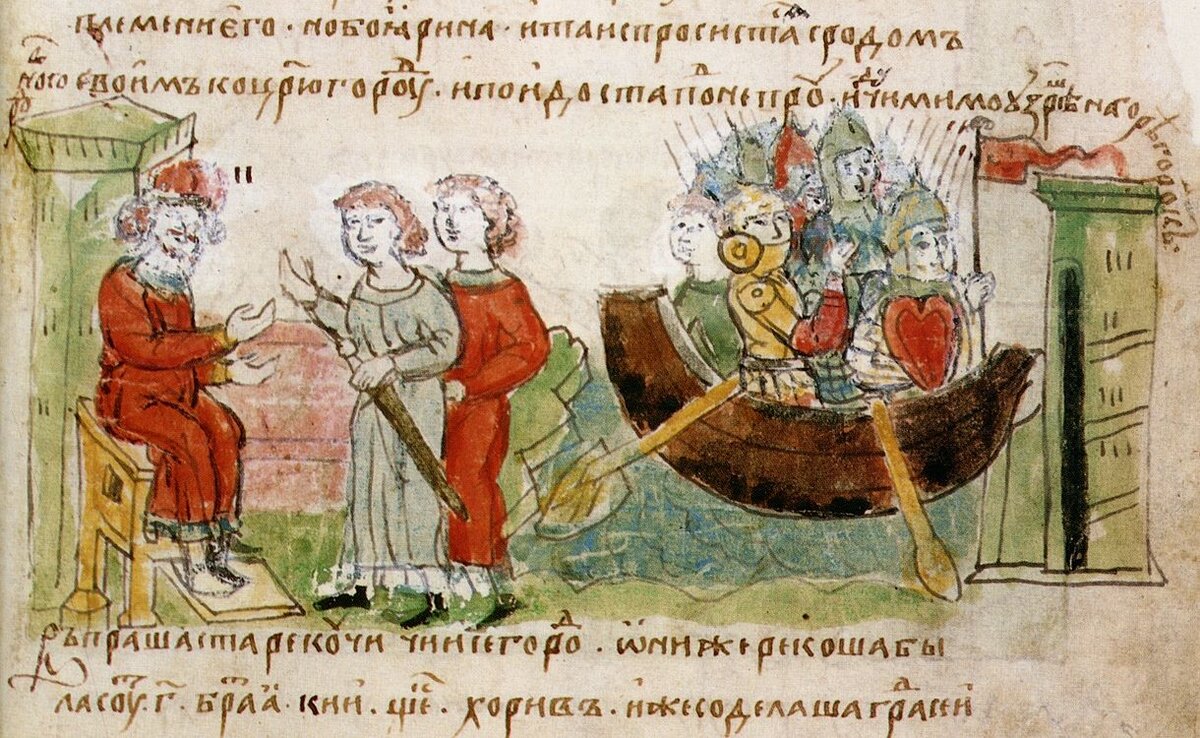 племени его · но боꙗрина · и та испросистаⷭ с родомъ
своимъ ко црюгороⷣу · и поидоста по непрⷹ · идⷹчи мимо узрⷭѣ на горѣ городокъ
въпрашаста рекочи чии се гороⷣ · ѡни же рекоша бы
ла соуⷮ · г · браⷮꙗ · кии · щеⷦ · хоривъ · иже соделаша граⷣ сеи